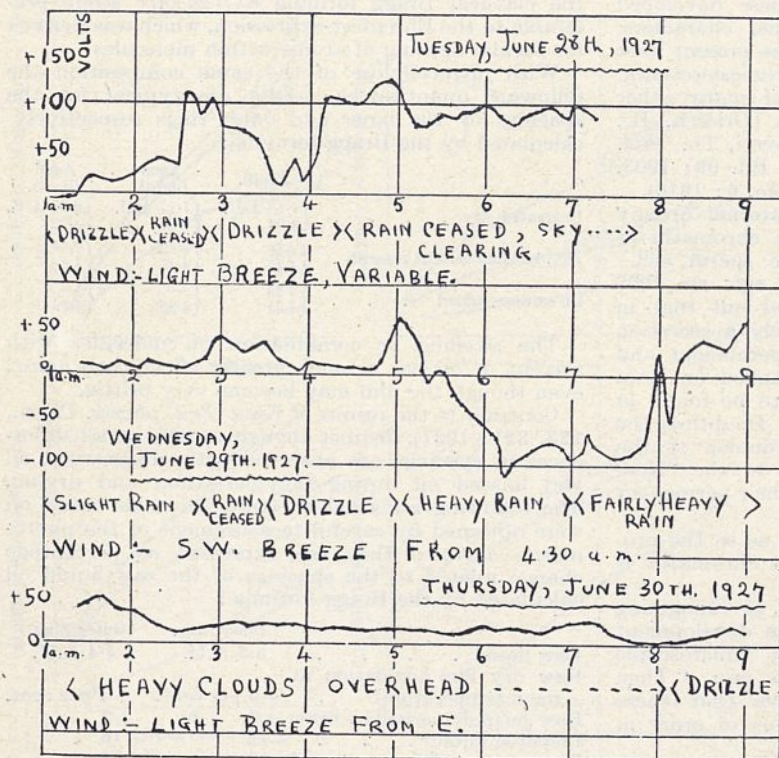 VOLTS
TUESDAY, JUNE 28th, 1927
+150
+100
+50
0
1a.m. 2 3 4 5 6 7 8 9
<DRIZZLE>< RAIN CEASED ><DRIZZLE>< RAIN CEASED, SKY ····>
CLEARING
WIND:- LIGHT BREEZE, VARIABLE.
+50
0
1a.m. 2 3 4 5 6 7 8 9
-50
-100
WEDNESDAY,
JUNE 29TH. 1927.
<SLIGHT RAIN >< RAIN CEASED ><DRIZZLE >< HEAVY RAIN ><FAIRLY HEAVY RAIN >
WIND:- S.W. BREEZE FROM 4.30 a.m.
THURSDAY, JUNE 30TH. 1927
+50
0
1a.m. 2 3 4 5 6 7 8 9
< HEAVY CLOUDS OVERHEAD - - - - - - - ><DRIZZLE
WIND:- LIGHT BREEZE FROM E.